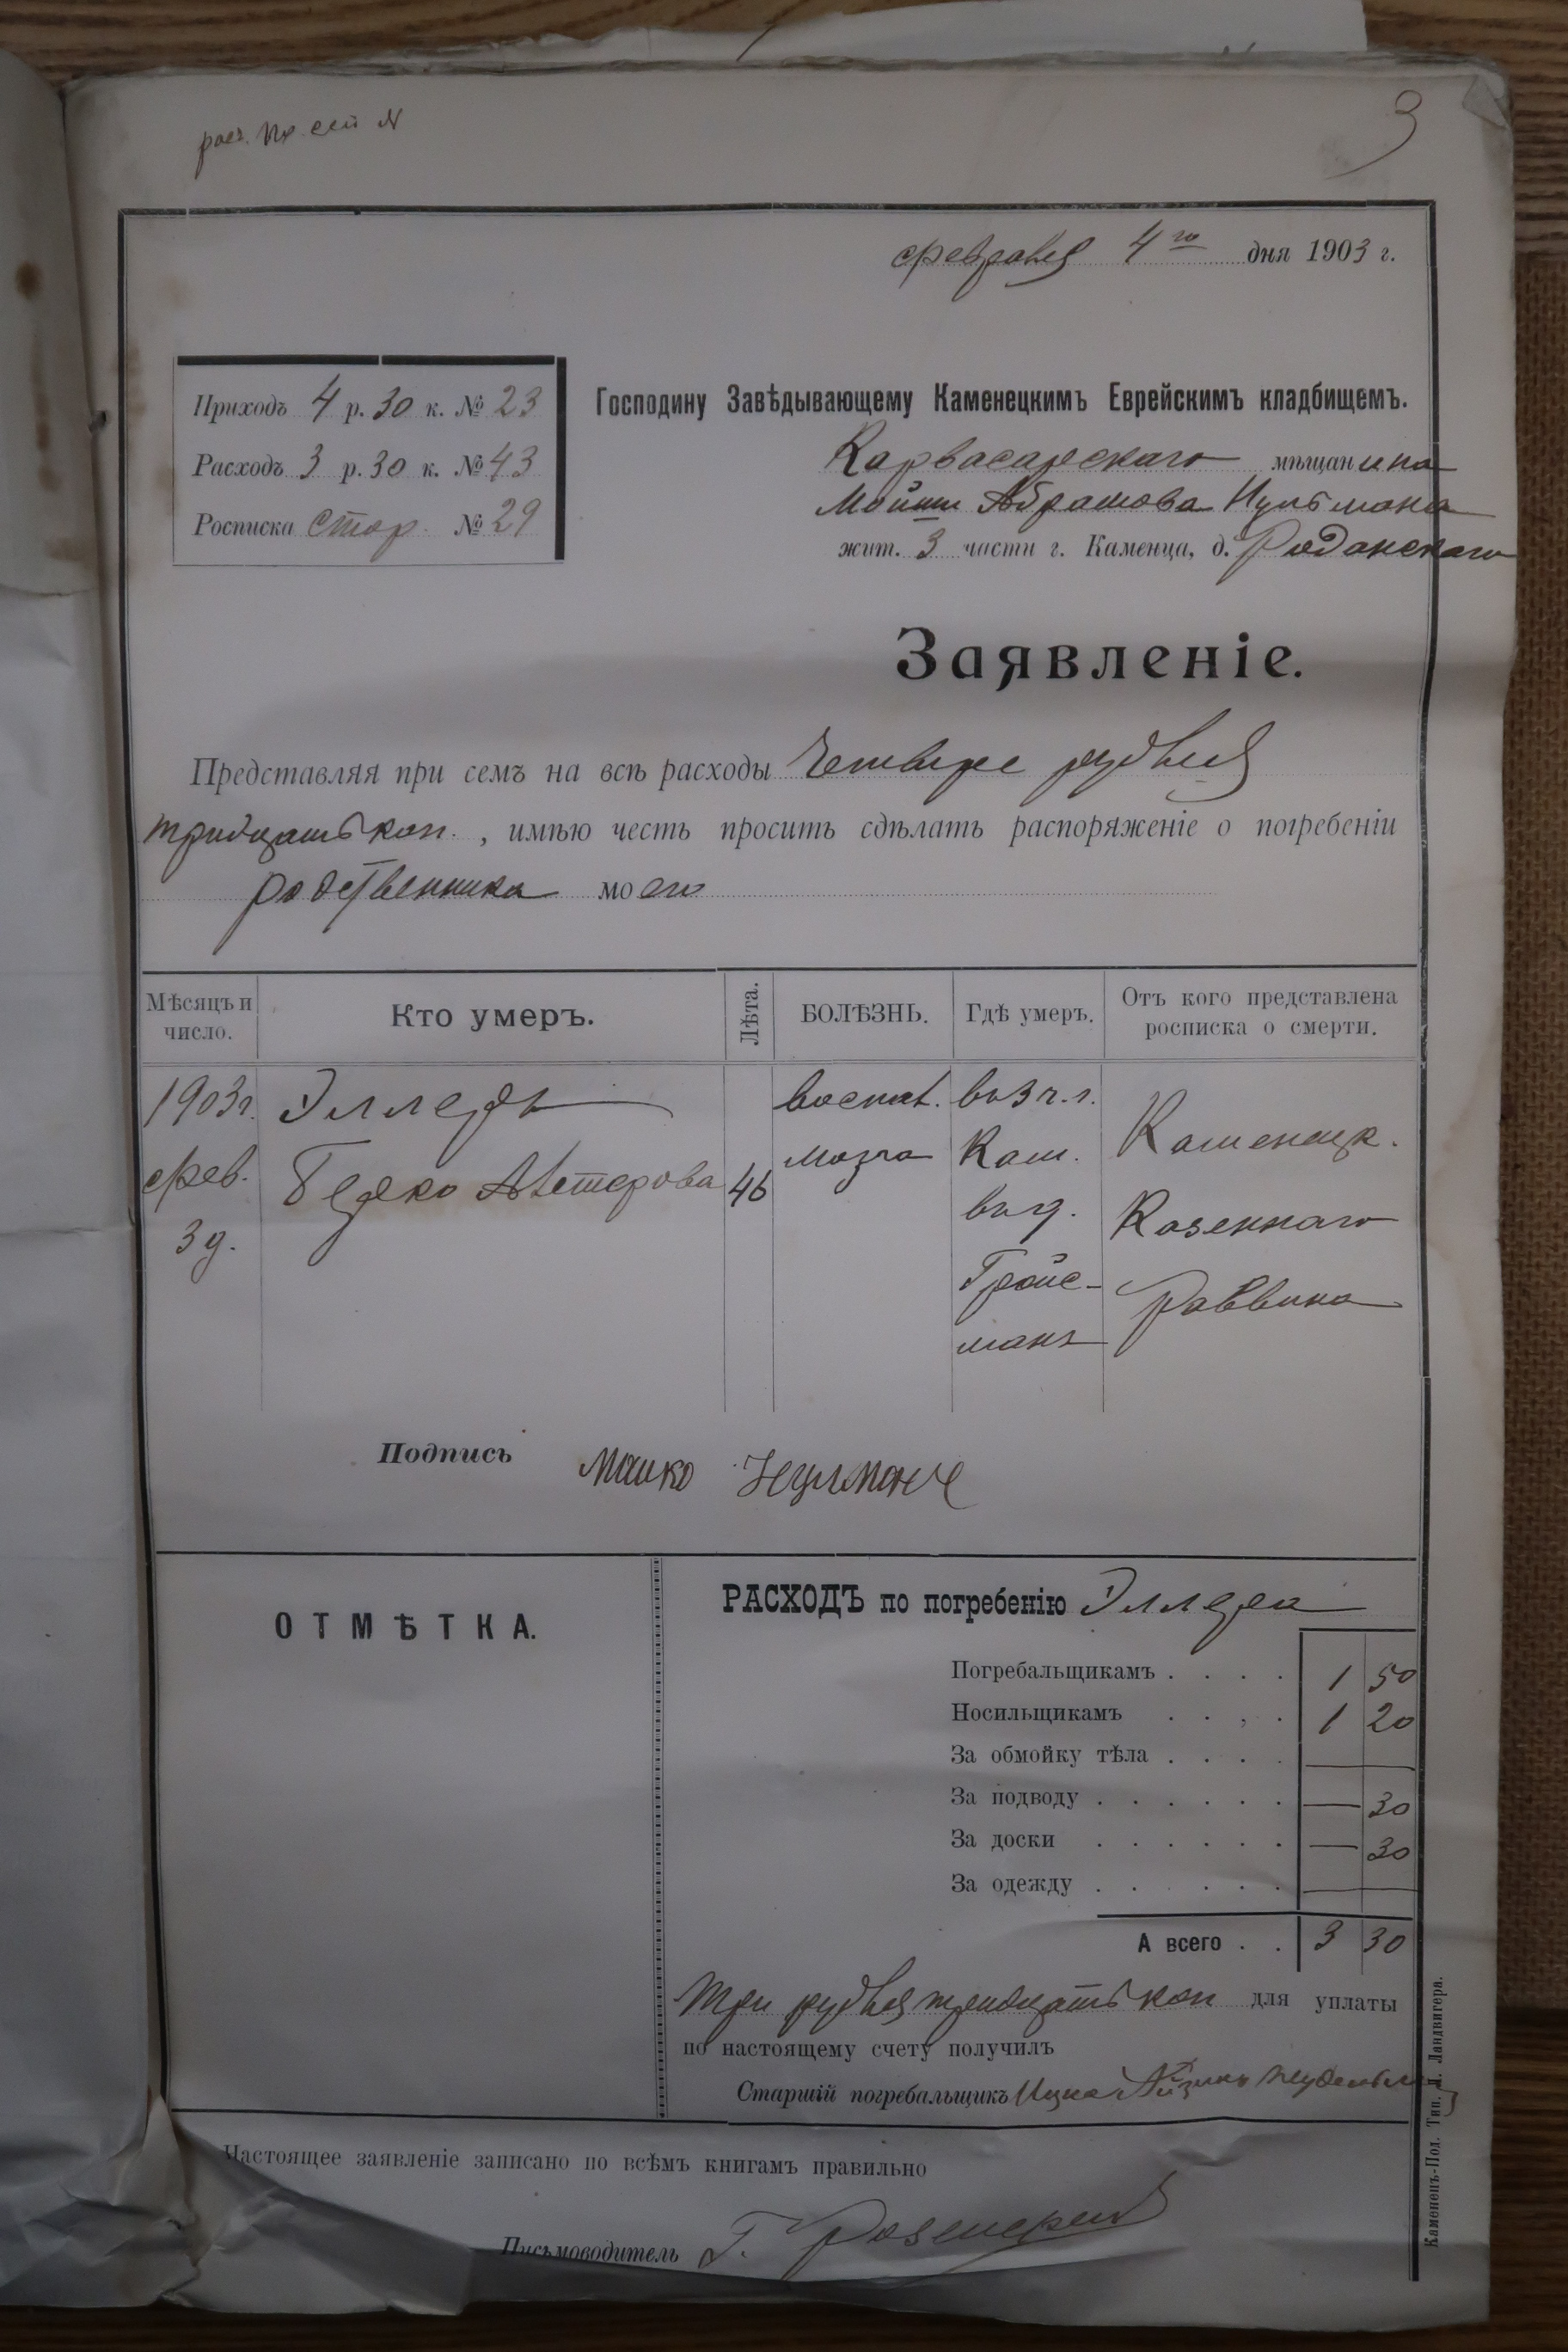 3
февраля 4го дня 1903 г.
Приходъ 4 р. 30 к. № 23
Расходъ 3 р. 30 к. № 43
Росписка Стар. № 29
Господину Завѣдывающему Каменецкимъ Еврейскимъ кладбищемъ.
Карвасарскаго мѣщанина
Мойши Абрамова Нульмана
жит. 3 части г. Каменца, д. Роданскаго
Заявленіе.
Представляя при семъ на всѣ расходы Четыре рубля
тридцать коп., имѣю честь просить сдѣлать распоряженіе о погребеніи
родственника моего
Мѣсяцъ и число.
Кто умеръ.
Лѣта.
БОЛѢЗНЬ.
Гдѣ умеръ.
Отъ кого представлена росписка о смерти.
1903 г.
фев.
3 д.
Эллеръ
Берко
46
воспал.
мозга
въ 3 ч. г.
Кам.
въ д.
Гройс-
манъ
Каменецк.
Казеннаго
Раввина
Подпись Мошко Нулманъ
ОТМѢТКА.
РАСХОДЪ по погребенію Эллера
Погребальщикамъ . . . . 1 50
Носильщикамъ . . , . 1 20
За обмойку тѣла . . . . —
За подводу . . . . . . — 30
За доски . . . . . . — 30
За одежду . . . . . . —
А всего . . 3 30
Три рубля тридцать коп для уплаты
по настоящему счету получилъ
Старшій погребальщикъ Ицко Айзикъ
Настоящее заявленіе записано по всѣмъ книгамъ правильно
Письмоводитель Г.
Каменецъ-Под. Тип. Л. Ландвигера.